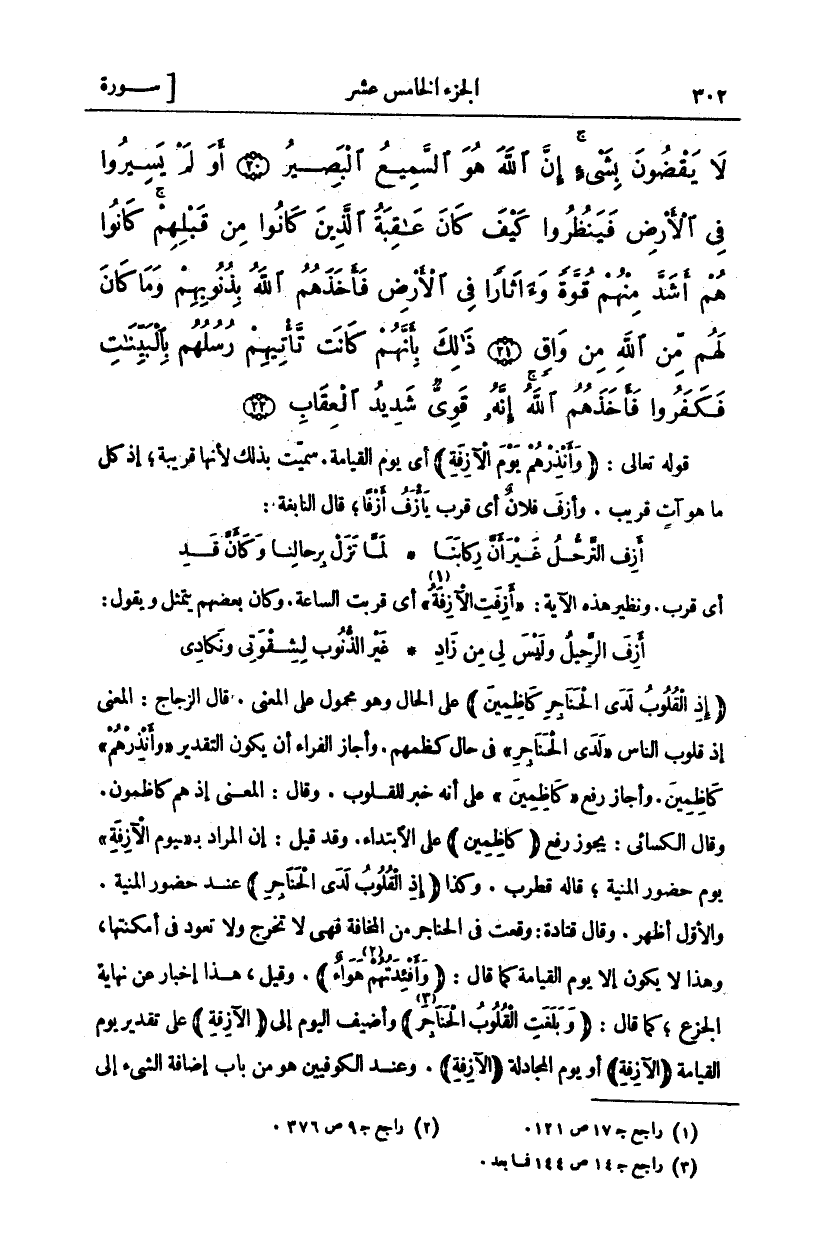 ٣٠٢ الجزء الخامس عشر [ سـورة
لَا يَقْضُونَ بِشَىْءٍ ۚ إِنَّ ٱللَّهَ هُوَ ٱلسَّمِيعُ ٱلْبَصِيرُ ﴿٢٠﴾ أَوَ لَمْ يَسِيرُوا
فِى ٱلْأَرْضِ فَيَنظُرُوا كَيْفَ كَانَ عَـٰقِبَةُ ٱلَّذِينَ كَانُوا مِن قَبْلِهِمْ ۚ كَانُوا
هُمْ أَشَدَّ مِنْهُمْ قُوَّةً وَءَاثَارًا فِى ٱلْأَرْضِ فَأَخَذَهُمُ ٱللَّهُ بِذُنُوبِهِمْ وَمَا كَانَ
لَهُم مِّنَ ٱللَّهِ مِن وَاقٍ ﴿٢١﴾ ذَٰلِكَ بِأَنَّهُمْ كَانَت تَّأْتِيهِمْ رُسُلُهُم بِٱلْبَيِّنَـٰتِ
فَكَفَرُوا فَأَخَذَهُمُ ٱللَّهُ ۚ إِنَّهُۥ قَوِىٌّ شَدِيدُ ٱلْعِقَابِ ﴿٢٢﴾
قوله تعالى : ﴿ وَأَنْذِرْهُمْ يَوْمَ الْآزِفَةِ ﴾ أى يوم القيامة . سميّت بذلك لأنها قريبة ؛ إذ كل
ما هو آتٍ قريب . وأزف فلانٌ أى قرب يَأْزَفُ أَزَفًا ؛ قال النابغة :
أَزِف التَّرَحُّلُ غَيْرَ أَنَّ رِكابَنَا * لمَّا تَزَلْ بِرحالِنا وَكَأَنْ قَـدِ
أى قرب . ونظير هذه الآية : «أَزِفَتِ الْآزِفَةُ(١)» أى قربت الساعة . وكان بعضهم يتمثل ويقول :
أَزِفَ الرحِيلُ وليْسَ لِى مِن زَادِ * غَيْرُ الذُّنُوب لِشِقْوَتِى ونَكَادِى
﴿ إِذِ الْقُلُوبُ لَدَى الْحَنَاجِرِ كَاظِمِينَ ﴾ على الحال وهو محمول على المعنى . قال الزجاج : المعنى
إذ قلوب الناس «لَدَى الْحَنَاجِرِ» فى حال كظمهم . وأجاز الفراء أن يكون التقدير «وأَنْذِرْهُمْ»
كَاظِمِينَ . وأجاز رفع «كَاظِمِينَ» على أنه خبر للقلوب . وقال : المعنى إذ هم كاظمون .
وقال الكسائى : يجوز رفع ﴿ كاظِمِين ﴾ على الأبتداء . وقد قيل : إن المراد بـ«يوم الْآزِفَةِ»
يوم حضور المنية ؛ قاله قطرب . وكذا ﴿ إِذِ الْقُلُوبُ لَدَى الْحَنَاجِرِ ﴾ عند حضور المنية .
والأوّل أظهر . وقال قتادة : وقعت فى الحناجر من المخافة فهى لا تخرج ولا تعود فى أمكنتها ،
وهذا لا يكون إلا يوم القيامة كما قال : ﴿ وَأَفْئِدَتُهُمْ هَوَاءٌ(٢) ﴾ . وقيل ، هـذا إخبار عن نهاية
الجزع ؛ كما قال : ﴿ وَبَلَغَتِ الْقُلُوبُ الْحَنَاجِرَ(٣) ﴾ وأضيف اليوم إلى ﴿ الآزِفةِ ﴾ على تقدير يوم
القيامة ﴿الآزِفَةِ﴾ أو يوم المجادلة ﴿الآزِفَةِ﴾ . وعند الكوفيين هو من باب إضافة الشىء إلى
(١) راجع جـ ١٧ ص ١٢١ . (٢) راجع جـ ٩ ص ٣٧٦ .
(٣) راجع جـ ١٤ ص ١٤٤ فما بعد .